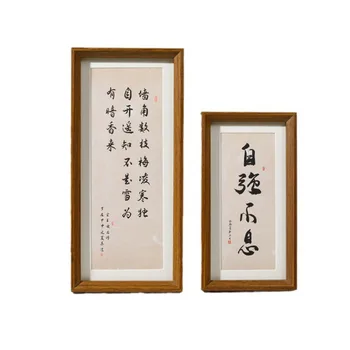 墙角数枝梅凌寒独
自开遥知不是雪为
有暗香来
自强不息